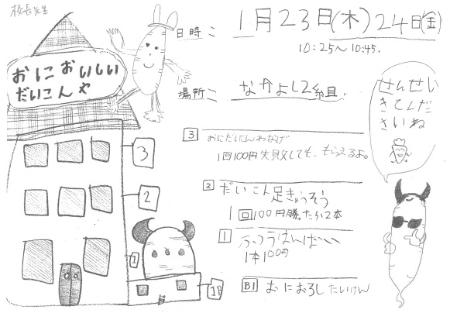 校長先生
日時：
1月23日(木) 24日(金)
10:25〜10:45.
おにおいしい
だいこんや
場所：
なかよし2組
せんせい
きてくだ
さいね
3
おにだいこんわなげ
1回100円失敗しても、もらえるよ。
2
だいこん足きょうそう
1回100円勝ったら2本
1
ふつうはんばい
1本100円
B1
おにおろしたいけん
3
2
1
B1